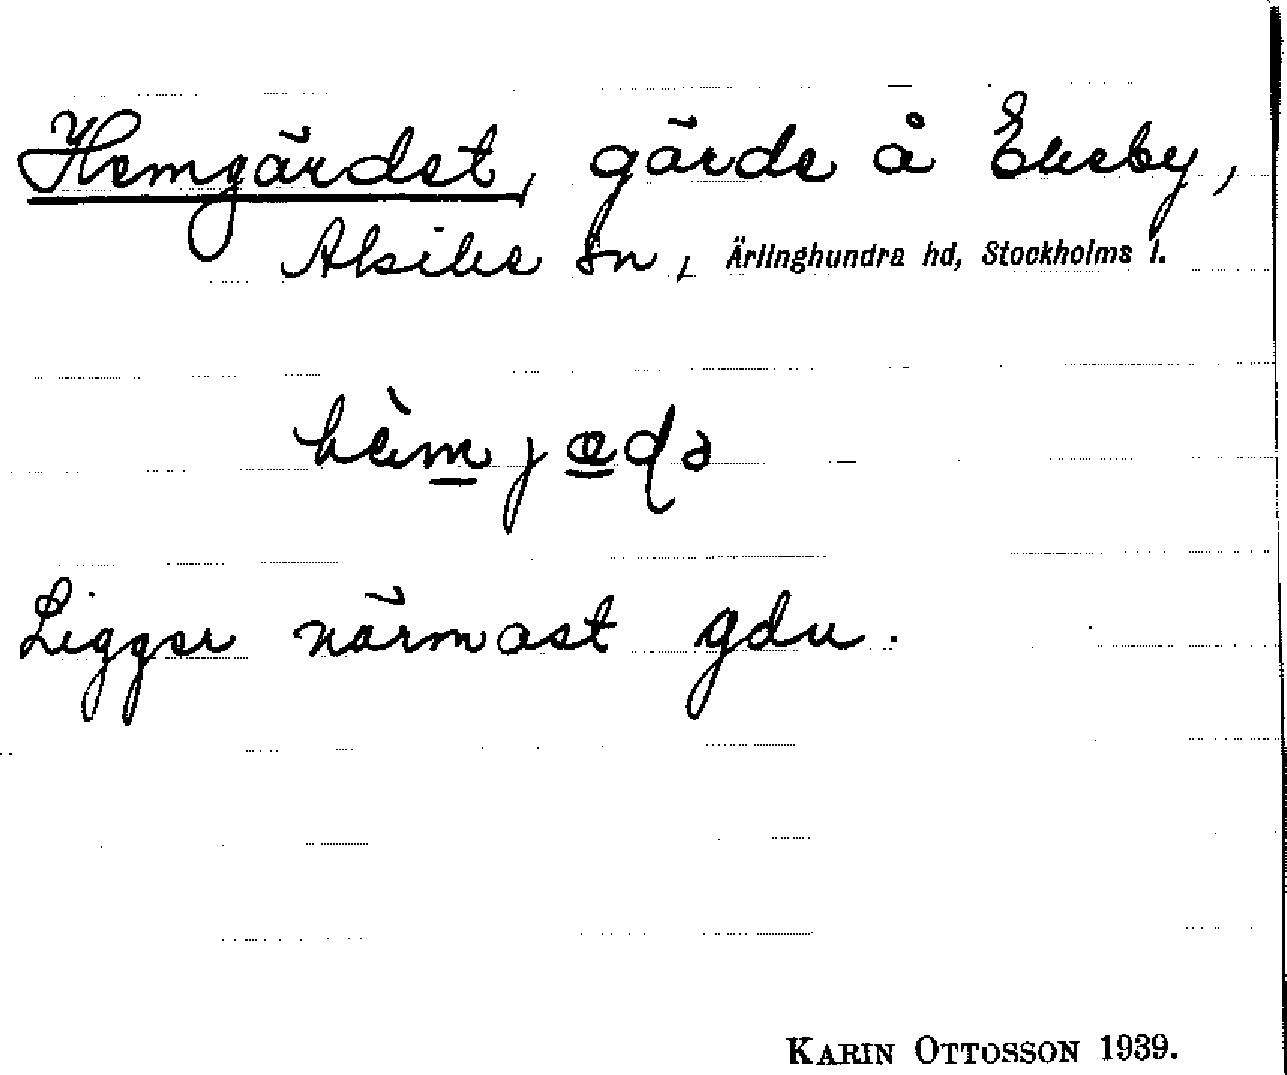 Hemgärdet, gärde å Ekeby,
Alsike sn, Ärlinghundra hd, Stockholms l.
Ligger närmast gdn.
KARIN OTTOSSON 1939.